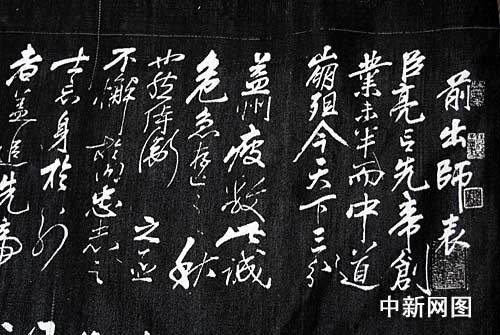 前出師表
臣亮言先帝創
業未半而中道
崩殂今天下三分
益州疲敝此誠
危急存亡之秋
也然侍衛之臣
不懈於內忠志之
士忘身於外
者蓋追先帝
中新网图